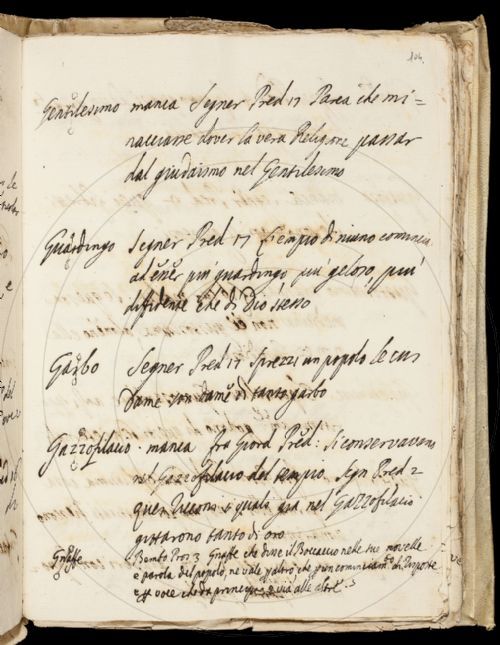 104
Gentilesimo manca Segner Pred 17 Parea che mi=
nacciasse dover la vera Religione passar
dal giudaismo nel Gentilesimo
Guardingo Segner Pred 17 l'empio di niuno comincia
ad esser più guardingo, più geloso, più
diffidente che di Dio stesso
Garbo Segner Pred 17 Sprezzi un popolo le cui
Dame son dame di tanto garbo
Gazzofilacio manca fra Giord Pred: si conservavano
nel Gazzofilacio del tempio. Segn Pred 2
quei Ricconi i quali già nel Gazzofilacio
gittarono tanto di oro
Gnaffe Bembo Pros 3 Gnaffe che disse il Boccaccio nelle sue novelle
è parola del popolo, ne vale per altro che per cominciam.to di risposte
e voce che dà principio e via alle altre